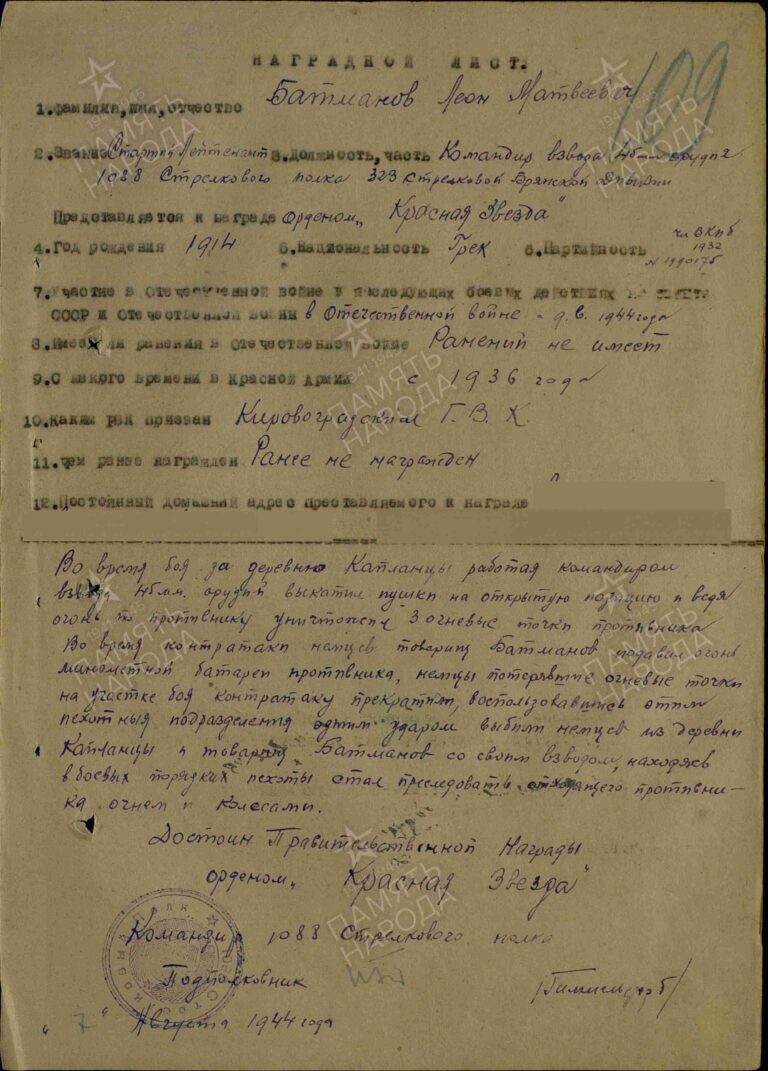 НАГРАДНОЙ ЛИСТ.
109
1.Фамилия,имя,отчество Батманов Леон Матвеевич
2.Звание Старший Лейтенант 3.Должность,часть Командир взвода 45мм орудий
1088 Стрелкового полка 323 стрелковой Брянской Дивизии
Представляется к награде Орденом „Красная Звезда"
4.Год рождения 1914 5.Национальность Грек 6.Партийность чл ВКПб
1932
N 1990175
7.Участие в Отечественной войне и последующих боевых действиях по защите
СССР и Отечественной войны в Отечественной войне - 9.6. 1944 года
8.Имеет ли ранения в Отечественной войне Ранений не имеет
9.С какого времени в Красной Армии с 1936 года
10.Каким РВК призван Кировоградским Г.В.К.
11.Чем ранее награжден Ранее не награжден
12.Постоянный домашний адрес преставляемого к награде
Во время боя за деревню Капланцы работая командиром
взвода 45мм. орудий выкатил пушки на открытую позицию и ведя
огонь по противнику уничтожил 3 огневые точки противника
Во время контратаки немцев товарищ Батманов подавил огонь
минометной батареи противника, немцы потерявшие огневые точки
на участке боя контратаку прекратили, воспользовавшись этим
пехотныя подразделения одним ударом выбили немцев из деревни
Капланцы и товарищ Батманов со своим взводом, находясь
в боевых порядках пехоты стал преследовать отходящего противни-
ка огнем и колесами.
Достоин Правительственной Награды
орденом „Красная Звезда"
Командир 1088 Стрелкового полка
Подполковник
„7" Августа 1944 года
ПАМЯТЬ НАРОДА